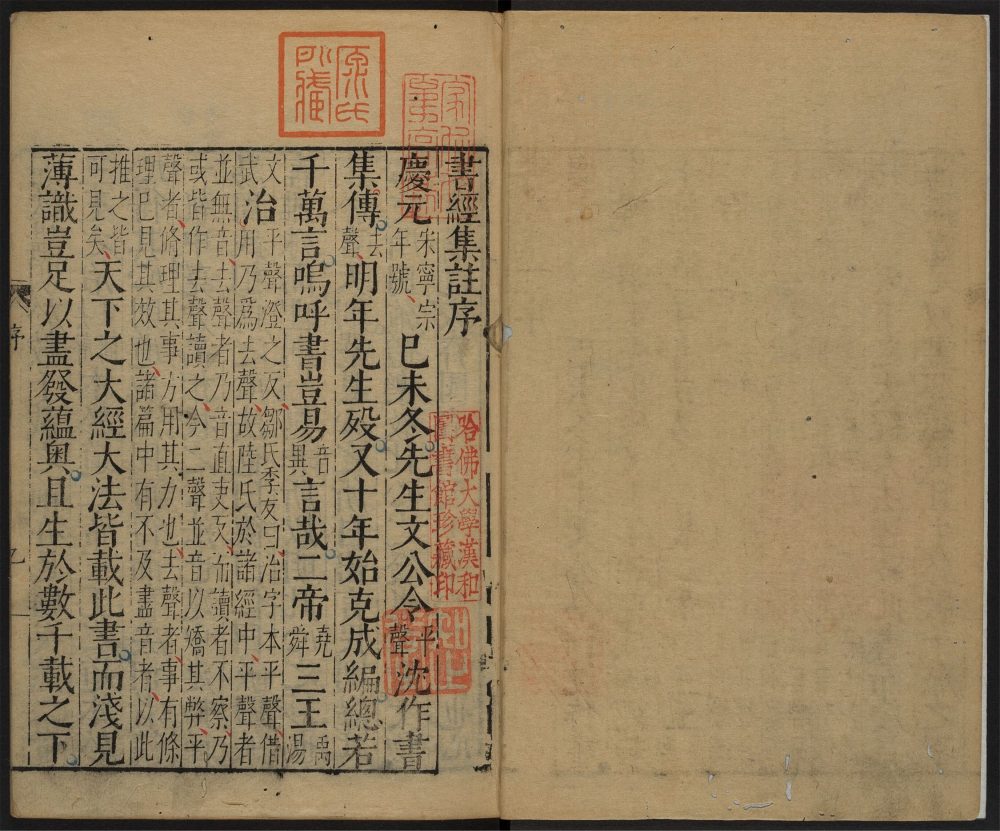 書經集註序
慶元宋寧宗年號巳未冬先生文公令平聲沈作書
集傳去聲明年先生歿又十年始克成編總若
千萬言嗚呼書豈易音異言哉二帝堯舜三王禹湯
文武治平聲澄之反鄒氏季友曰治字本平聲借
用乃爲去聲故陸氏於諸經中平聲者
並無音去聲者乃音直吏反而讀者不察乃
或皆作去聲讀之今二聲並音以矯其弊平
聲者修理其事方用其力也去聲者事有條
理已見其效也諸篇中有不及盡音者以此
推之皆可見矣天下之大經大法皆載此書而淺見
薄識豈足以盡發蘊奧且生於數千載之下
序
哈佛大學漢和
圖書館珍藏印